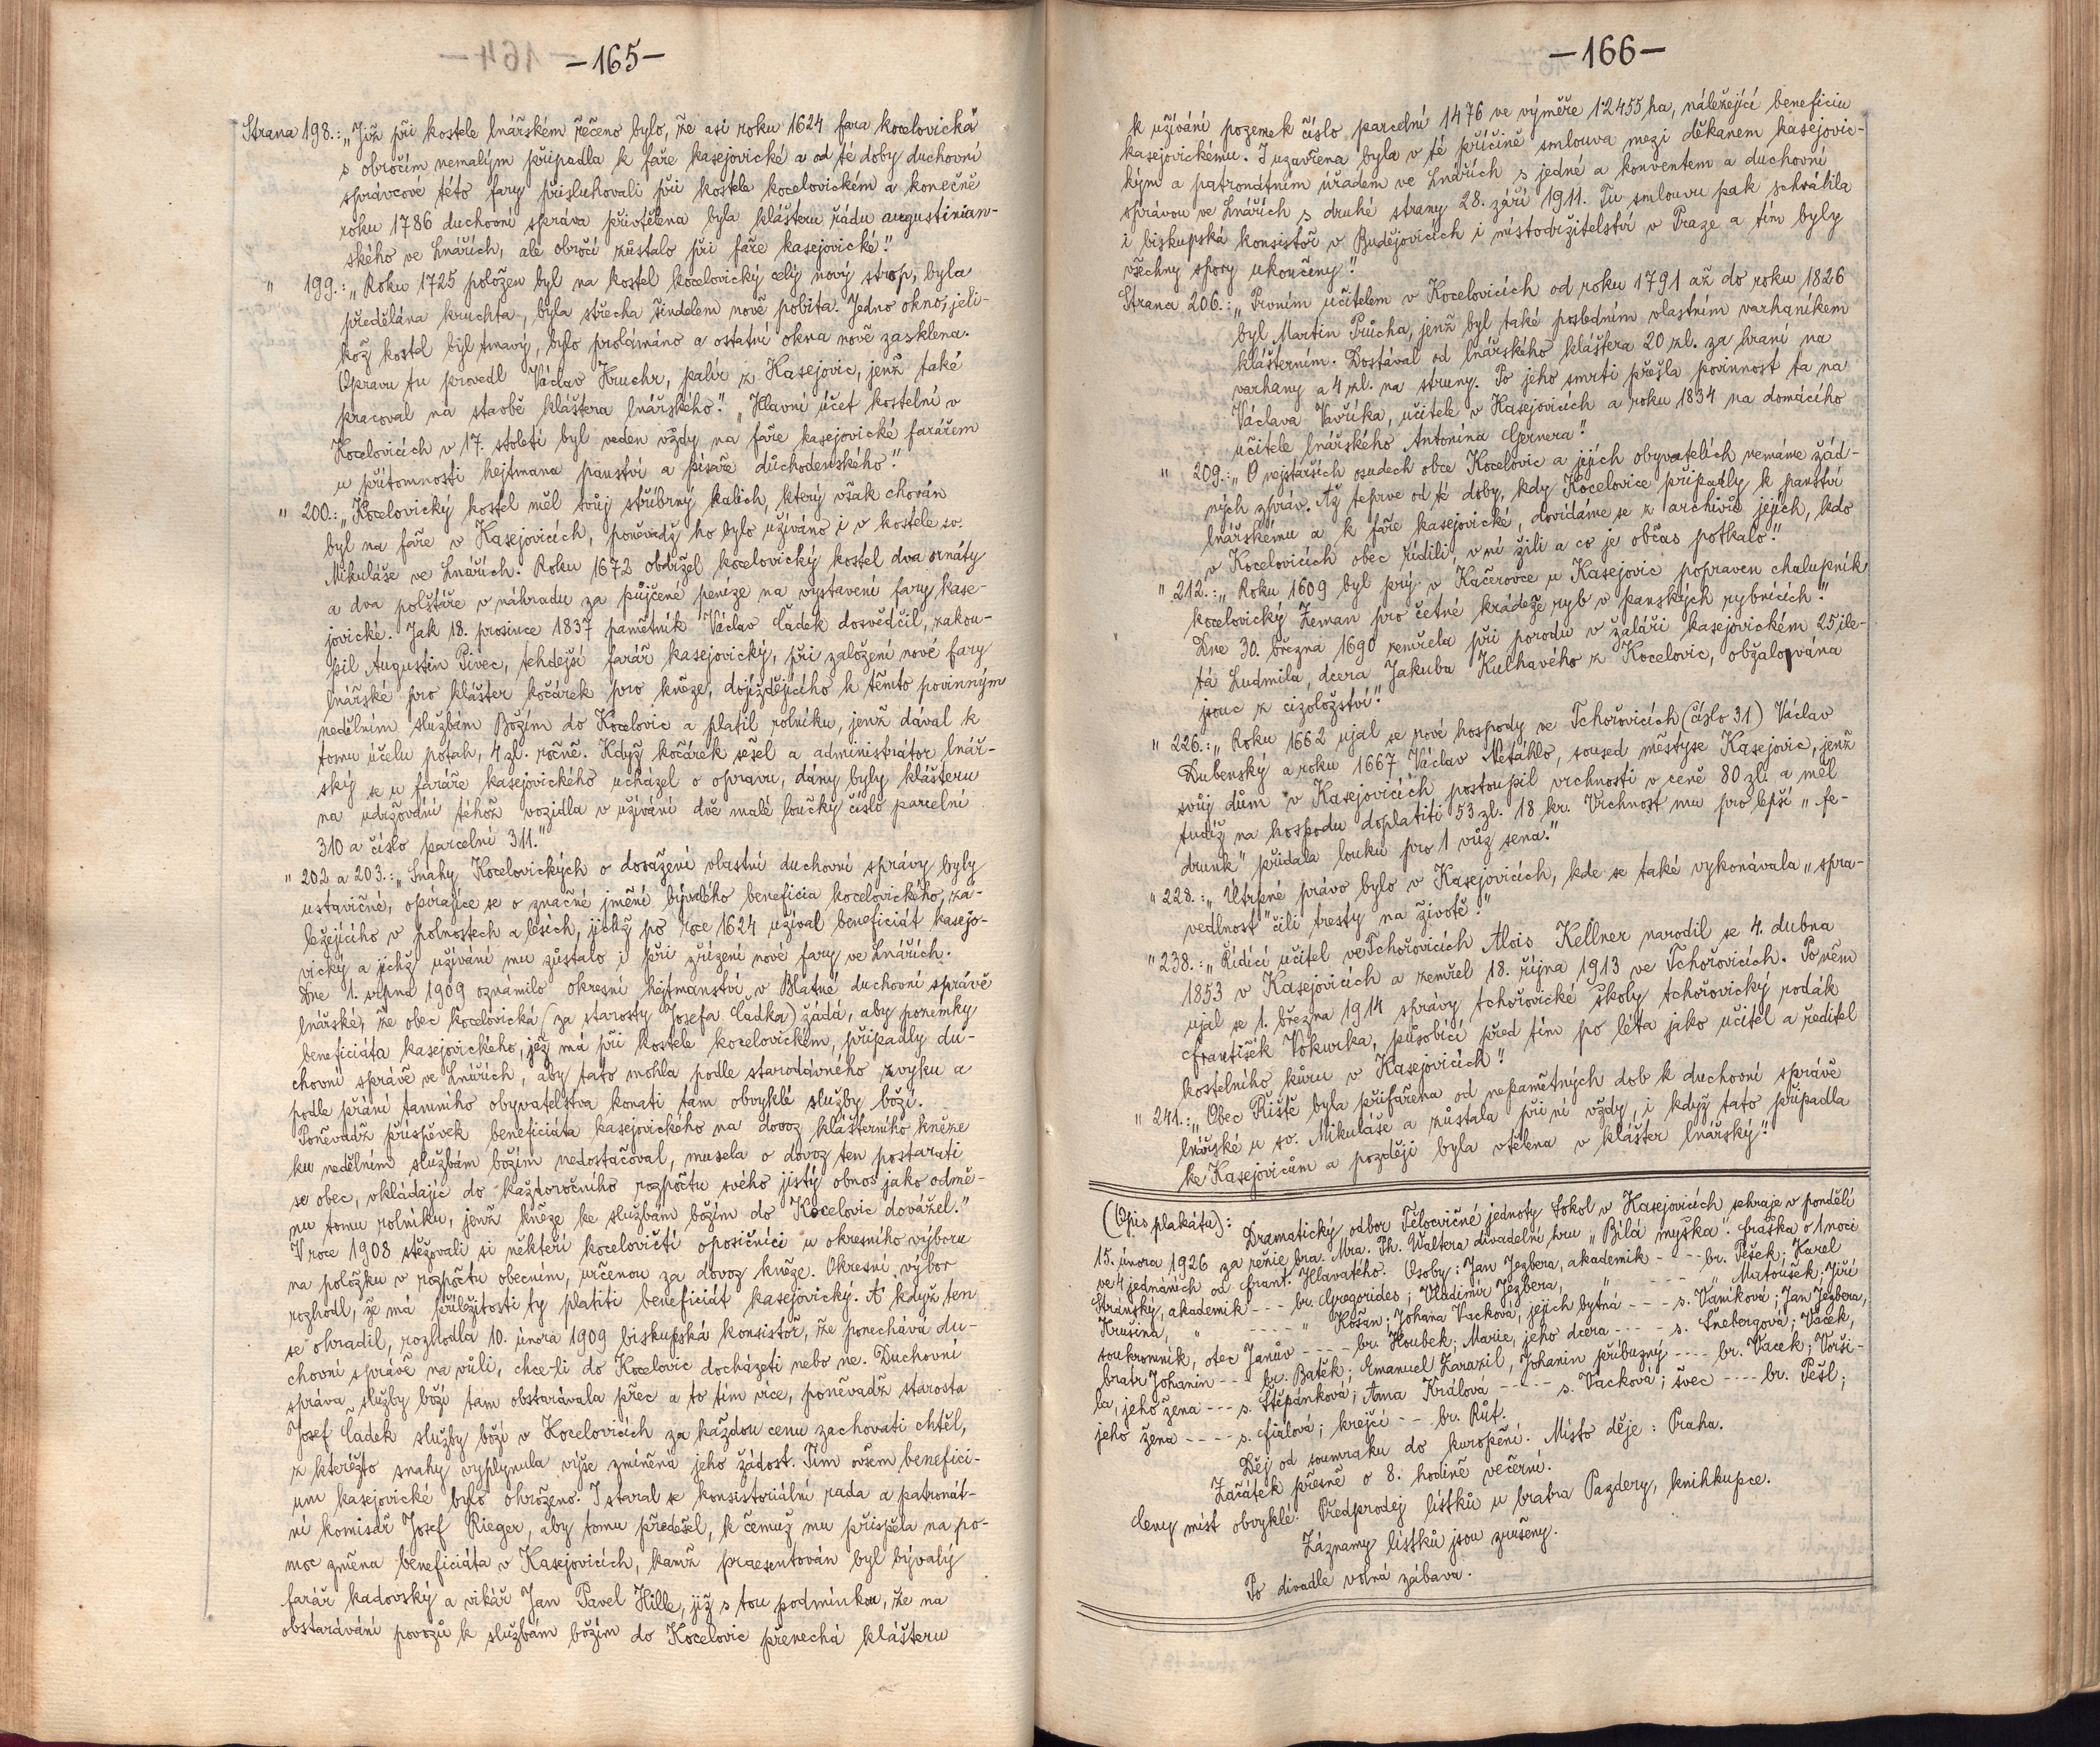 —165—
Strana 198.: „Již při kostele lnářském řečeno bylo, že asi roku 1624 fara kocelovická
s obročím nemalým připadla k faře kasejovické a od té doby duchovní
správcové této fary přisluhovali při kostele kocelovickém a konečně
roku 1786 duchovní správa přivtělena byla klášteru řádu augustinian-
ského ve Lnářích, ale obročí zůstalo při faře kasejovické."
" 199.: „Roku 1725 položen byl na kostel kocelovický celý nový strop, byla
předělána kruchta, byla střecha šindelem nově pobita. Jedno okno, jeli-
kož kostel byl tmavý, bylo prolámáno a ostatní okna nově zasklena.
Opravu tu provedl Václav Kruchr, palír z Kasejovic, jenž také
pracoval na stavbě kláštera lnářského." „Hlavní účet kostelní v
Kocelovicích v 17. století byl veden vždy na faře kasejovické farářem
u přítomnosti hejtmana panství a písaře důchodenského."
" 200.: „Kocelovický kostel měl svůj stříbrný kalich, který však chován
byl na faře v Kasejovicích, poněvadž ho bylo užíváno i v kostele sv.
Mikuláše ve Lnářích. Roku 1672 obdržel kocelovický kostel dva ornáty
a dva polštáře v náhradu za půjčené peníze na vystavení fary kase-
jovické. Jak 18. prosince 1837 pamětník Václav Čádek dosvědčil, zakou-
pil Augustin Pivec, tehdejší farář kasejovický, při založení nové fary
lnářské pro klášter kočárek pro kněze, dojíždějícího k těmto povinným
nedělním službám Božím do Kocelovic a platil rolníku, jenž dával k
tomu účelu potah, 4 zl. ročně. Když kočárek sešel a administrátor lnář-
ský se u faráře kasejovického ucházel o opravu, dány byly klášteru
na udržování téhož vozidla v užívání dvě malé loučky číslo parcelní
310 a číslo parcelní 311."
" 202 a 203.: „Snahy Kocelovických o dosažení vlastní duchovní správy byly
ustavičné, opírajíce se o značné jmění bývalého beneficia kocelovického, zá-
ležejícího v polnostech a lesích, jichž po roce 1624 užíval beneficiát kasejo-
vický a jichž užívání mu zůstalo i při zřízení nové fary ve Lnářích.
Dne 1. srpna 1909 oznámilo okresní hejtmanství v Blatné duchovní správě
lnářské, že obec kocelovická (za starosty Josefa Čádka) žádá, aby pozemky
beneficiáta kasejovického, jež má při kostele kocelovickém, připadly du-
chovní správě ve Lnářích, aby tato mohla podle starodávného zvyku a
podle přání tamního obyvatelstva konati tam obvyklé služby boží.
Poněvadž příspěvek beneficiáta kasejovického na dovoz klášterního kněze
ku nedělním službám božím nedostačoval, musela o dovoz ten postarati
se obec, vkládajíc do každoročního rozpočtu svého jistý obnos jako odmě-
nu tomu rolníku, jenž kněze ke službám božím do Kocelovic dovážel."
V roce 1908 stěžovali si někteří kocelovičtí oposičníci u okresního výboru
na položku v rozpočtu obecním, určenou za dovoz kněze. Okresní výbor
rozhodl, že má příležitosti ty platiti beneficiát kasejovický. A když ten
se ohradil, rozhodla 10. února 1909 biskupská konsistoř, že ponechává du-
chovní správě na vůli, chce-li do Kocelovic docházeti nebo ne. Duchovní
správa služby boží tam obstarávala přec a to tím více, poněvadž starosta
Josef Čádek služby boží v Kocelovicích za každou cenu zachovati chtěl,
z kteréžto snahy vyplynula výše zmíněná jeho žádost. Tím ovšem benefici-
um kasejovické bylo ohroženo. I staral se konsistoriální rada a patronát-
ní komisař Josef Rieger, aby tomu předešel, k čemuž mu přispěla na po-
moc změna beneficiáta v Kasejovicích, kamž praesentován byl bývalý
farář kadovský a vikář Jan Pavel Hille, již s tou podmínkou, že na
obstarávání povozů k službám božím do Kocelovic přenechá klášteru
—166—
k užívání pozemek číslo parcelní 1476 ve výměře 1·2455 ha, náležející beneficiu
kasejovickému. I uzavřena byla v té příčině smlouva mezi děkanem kasejovic-
kým a patronátním úřadem ve Lnářích s jedné a konventem a duchovní
správou ve Lnářích s druhé strany 28. září 1911. Tu smlouvu pak schválila
i biskupská konsistoř v Budějovicích i místodržitelství v Praze a tím byly
všechny spory ukončeny."
Strana 206.: „Prvním učitelem v Kocelovicích od roku 1791 až do roku 1826
byl Martin Průcha, jenž byl také posledním vlastním varhaníkem
klášterním. Dostával od lnářského kláštera 20 zl. za hraní na
varhany a 4 zl. na struny. Po jeho smrti přešla povinnost ta na
Václava Vavříka, učitele v Kasejovicích a roku 1834 na domácího
učitele lnářského Antonína Gernera."
" 209.: „O nejstarších osudech obce Kocelovic a jejích obyvatelích nemáme žád-
ných zpráv. Až teprve od té doby, kdy Kocelovice připadly k panství
lnářskému a k faře kasejovické, dovídáme se z archivů jejich, kdo
v Kocelovicích obec řídili, v ní žili a co je občas potkalo."
" 212.: „Roku 1609 byl prý v Kačerovce u Kasejovic popraven chalupník
kocelovický Zeman pro četné krádeže ryb v panských rybnících."
Dne 30. března 1690 zemřela při porodu v žaláři kasejovickém 25ile-
tá Ludmila, dcera Jakuba Kulhavého z Kocelovic, obžalována
jsouc z cizoložství."
" 226.: „Roku 1662 ujal se nové hospody ve Tchořovicích (číslo 31) Václav
Dubenský a roku 1667 Václav Netáhlo, soused městyse Kasejovic, jenž
svůj dům v Kasejovicích postoupil vrchnosti v ceně 80 zl. a měl
tudíž na hospodu doplatiti 53 zl. 18 kr. Vrchnost mu pro lepší „fe-
drunk" přidala louku pro 1 vůz sena."
" 228.: „Útrpné právo bylo v Kasejovicích, kde se také vykonávala „spra-
vedlnost" čili tresty na životě."
" 238.: „Řídící učitel ve Tchořovicích Alois Kellner narodil se 4. dubna
1853 v Kasejovicích a zemřel 18. října 1913 ve Tchořovicích. Po něm
ujal se 1. března 1914 správy tchořovické školy tchořovický rodák
František Vokurka, působící před tím po léta jako učitel a ředitel
kostelního kůru v Kasejovicích."
" 241.: „Obec Řiště byla přifařena od nepamětných dob k duchovní správě
lnářské u sv. Mikuláše a zůstala při ní vždy, i když tato připadla
ke Kasejovicům a později byla vtělena v klášter lnářský."
(Opis plakátu): Dramatický odbor Tělocvičné jednoty Sokol v Kasejovicích sehraje v pondělí
15. února 1926 za režie bra. Mra. Ph. Waltera divadelní hru „Bílá myška". Fraška o 1 noci
ve 4 jednáních od Frant. Hlavatého. Osoby: Jan Jezbera, akademik - - - br. Pešek; Karel
Stránský, akademik - - - br. Gregorides; Vladimír Jezbera, " - - - " Matoušek; Jiří
Krušina, " - - - - " Košan; Johana Vacková, jejich bytná - - - s. Vaníková; Jan Jezbera,
soukromník, otec Janův - - - - br. Houbek; Marie, jeho dcera - - - - s. Šnebergová; Vacek,
bratr Johanin - - - br. Batěk; Emanuel Zarazil, Johanin příbuzný - - - - br. Vacek; Vorši-
la, jeho žena - - - s. Štěpánková; Anna Králová - - - - - s. Vacková; švec - - - - br. Pešl;
jeho žena - - - - s. Fialová; krejčí - - br. Růt.
Děj od soumraku do kuropění. Místo děje: Praha.
Začátek přesně o 8. hodině večerní.
Ceny míst obvyklé. Předprodej lístků u bratra Pazdery, knihkupce.
Záznamy lístků jsou zrušeny.
Po divadle volná zábava.